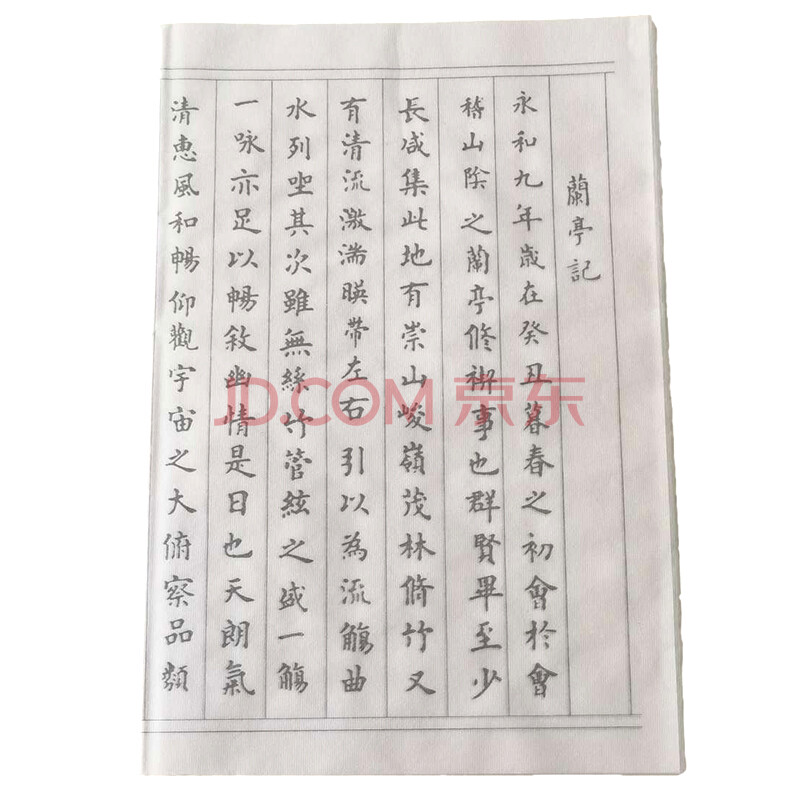 蘭亭記
永和九年歲在癸丑暮春之初會於會
稽山陰之蘭亭修禊事也群賢畢至少
長咸集此地有崇山峻嶺茂林脩竹又
有清流激湍暎帶左右引以為流觴曲
水列坐其次雖無絲竹管絃之盛一觴
一咏亦足以暢敘幽情是日也天朗氣
清惠風和暢仰觀宇宙之大俯察品類
JD.COM 京东